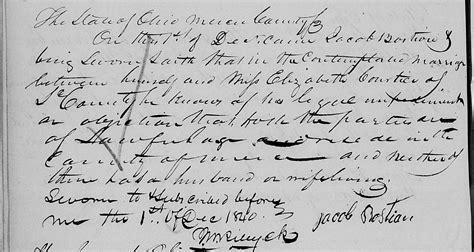 The State of Ohio Mercer County ss
On the 1st of Dec. came Jacob Bostion &
being Sworn Saith that in the Contemplated marriage
between himself and Miss Elizabeth Courter of
Sd County he knows of no legue impediment
or objection that both the parties are
of Lawful age and reside in the
County of Mercer and neither of
them has a husband or wife living.
Sworn to & subscribed before
me the 1st of Dec 1840. Jacob Bostian